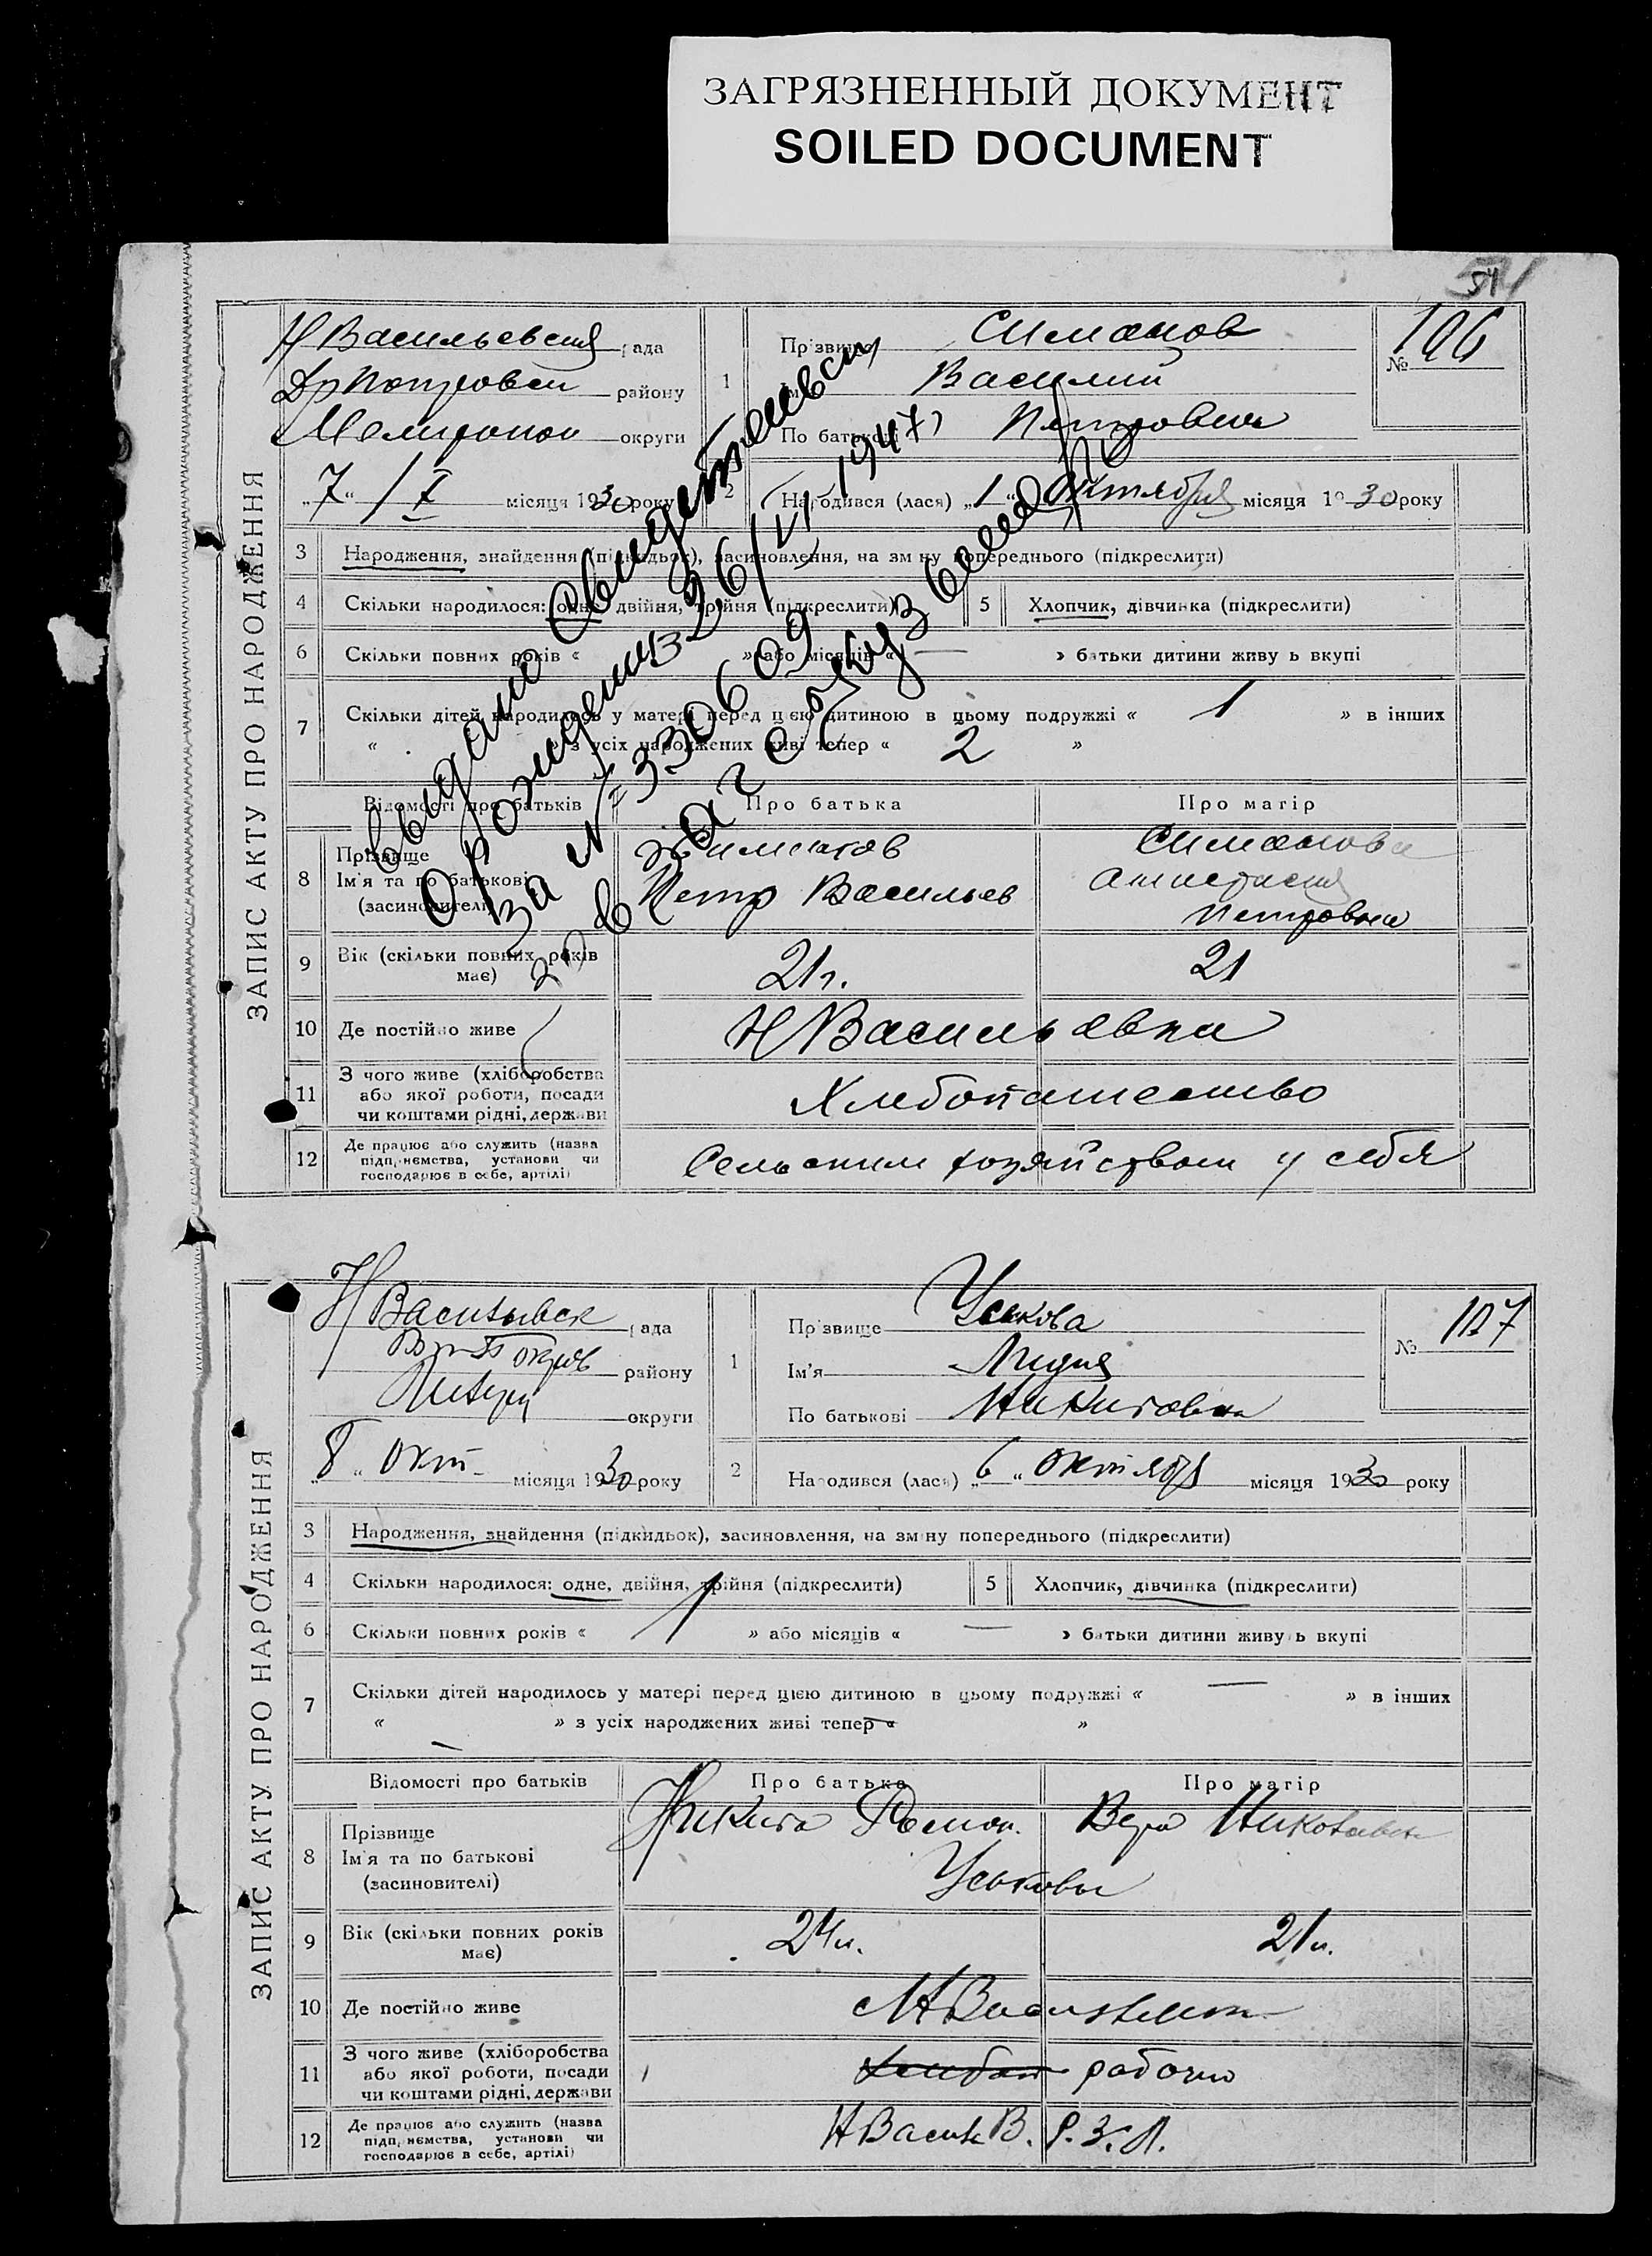 ЗАГРЯЗНЕННЫЙ ДОКУМЕНТ
SOILED DOCUMENT
54
ЗАПИС АКТУ ПРО НАРОДЖЕННЯ
НВасильевская рада
району
округи
№ 106
1 Прізвище Симанов
Ім'я Василий
По батькові Петрович
„7“ / X місяця 1930 року
2 Народився (лася) „1“ Октября місяця 1930 року
3 Народження, знайдення (підкидьок), засиновлення, на зміну попереднього (підкреслити)
4 Скільки народилося: одне, двійня, трійня (підкреслити)
5 Хлопчик, дівчинка (підкреслити)
6 Скільки повних років « » або місяців « — » батьки дитини живуть вкупі
7 Скільки дітей народилось у матері перед цією дитиною в цьому подружжі « 1 » в інших
« » з усіх народжених живі тепер « 2 »
Відомості про батьків Про батька Про матір
8 Прізвище
Ім'я та по батькові
(засиновителі)
Симанов
Петр Васильев
Симанова
Анастасия
Петровна
9 Вік (скільки повних років
має)
21 г. 21
10 Де постійно живе НВасильевка
11 З чого живе (хліборобства
або якої роботи, посади
чи коштами рідні, держави
Хлебопашество
12 Де працює або служить (назва
підприємства, установи чи
господарює в себе, артілі)
Сельским хозяйством у себя
Выдано свидетельст
о рождении 26/VI 1947 г
за № 330609
ЗАПИС АКТУ ПРО НАРОДЖЕННЯ
НВасильевск рада
району
округи
№ 107
1 Прізвище Уськова
Ім'я Лидия
По батькові Никитовна
„8“ окт. місяця 1930 року
2 Народився (лася) „6“ октября місяця 1930 року
3 Народження, знайдення (підкидьок), засиновлення, на зміну попереднього (підкреслити)
4 Скільки народилося: одне, двійня, трійня (підкреслити)
5 Хлопчик, дівчинка (підкреслити)
6 Скільки повних років « 1 » або місяців « — » батьки дитини живуть вкупі
7 Скільки дітей народилось у матері перед цією дитиною в цьому подружжі « — » в інших
« — » з усіх народжених живі тепер « — »
Відомості про батьків Про батька Про матір
8 Прізвище
Ім'я та по батькові
(засиновителі)
Никита Роман. Вера Николаевн
Уськовы
9 Вік (скільки повних років
має)
24 л. 21 л.
10 Де постійно живе
11 З чого живе (хліборобства
або якої роботи, посади
чи коштами рідні, держави
рабочий
12 Де працює або служить (назва
підприємства, установи чи
господарює в себе, артілі)